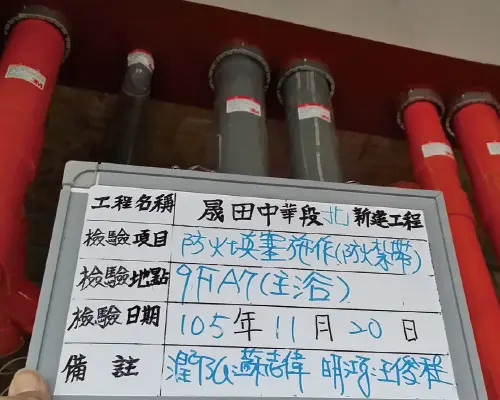 工程名稱 晟田中華段北新建工程
檢驗項目 防火填塞施作(防火紮帶)
檢驗地點 9F A7(主浴)
檢驗日期 105年11月20日
備註 潤弘蘇志偉 明鴻汪俊程